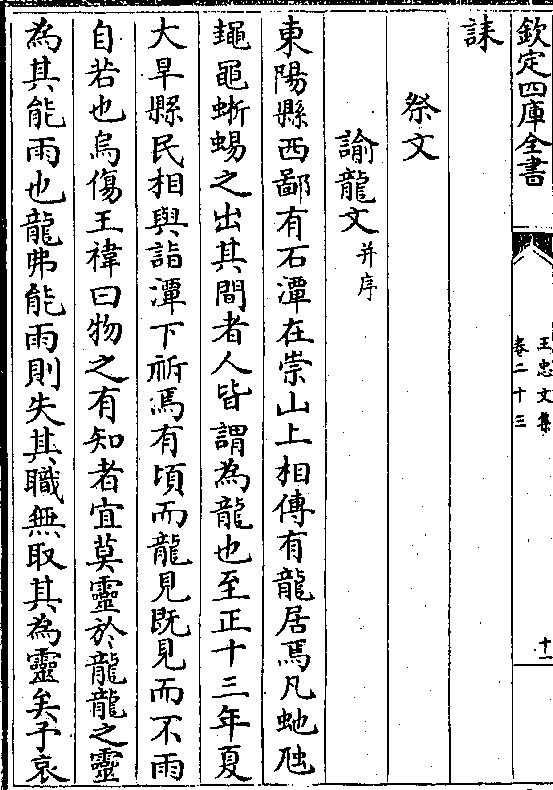 欽定四庫全書
王忠文集
卷二十三
十一
誄
祭文
諭龍文并序
東陽縣西鄙有石潭在崇山上相傳有龍居焉凡虵虺
䵷黽蜥蜴之出其間者人皆謂為龍也至正十三年夏
大旱縣民相與詣潭下祈焉有頃而龍見既見而不雨
自若也烏傷王禕曰物之有知者宜莫靈於龍龍之靈
為其能雨也龍弗能雨則失其職無取其為靈矣予哀